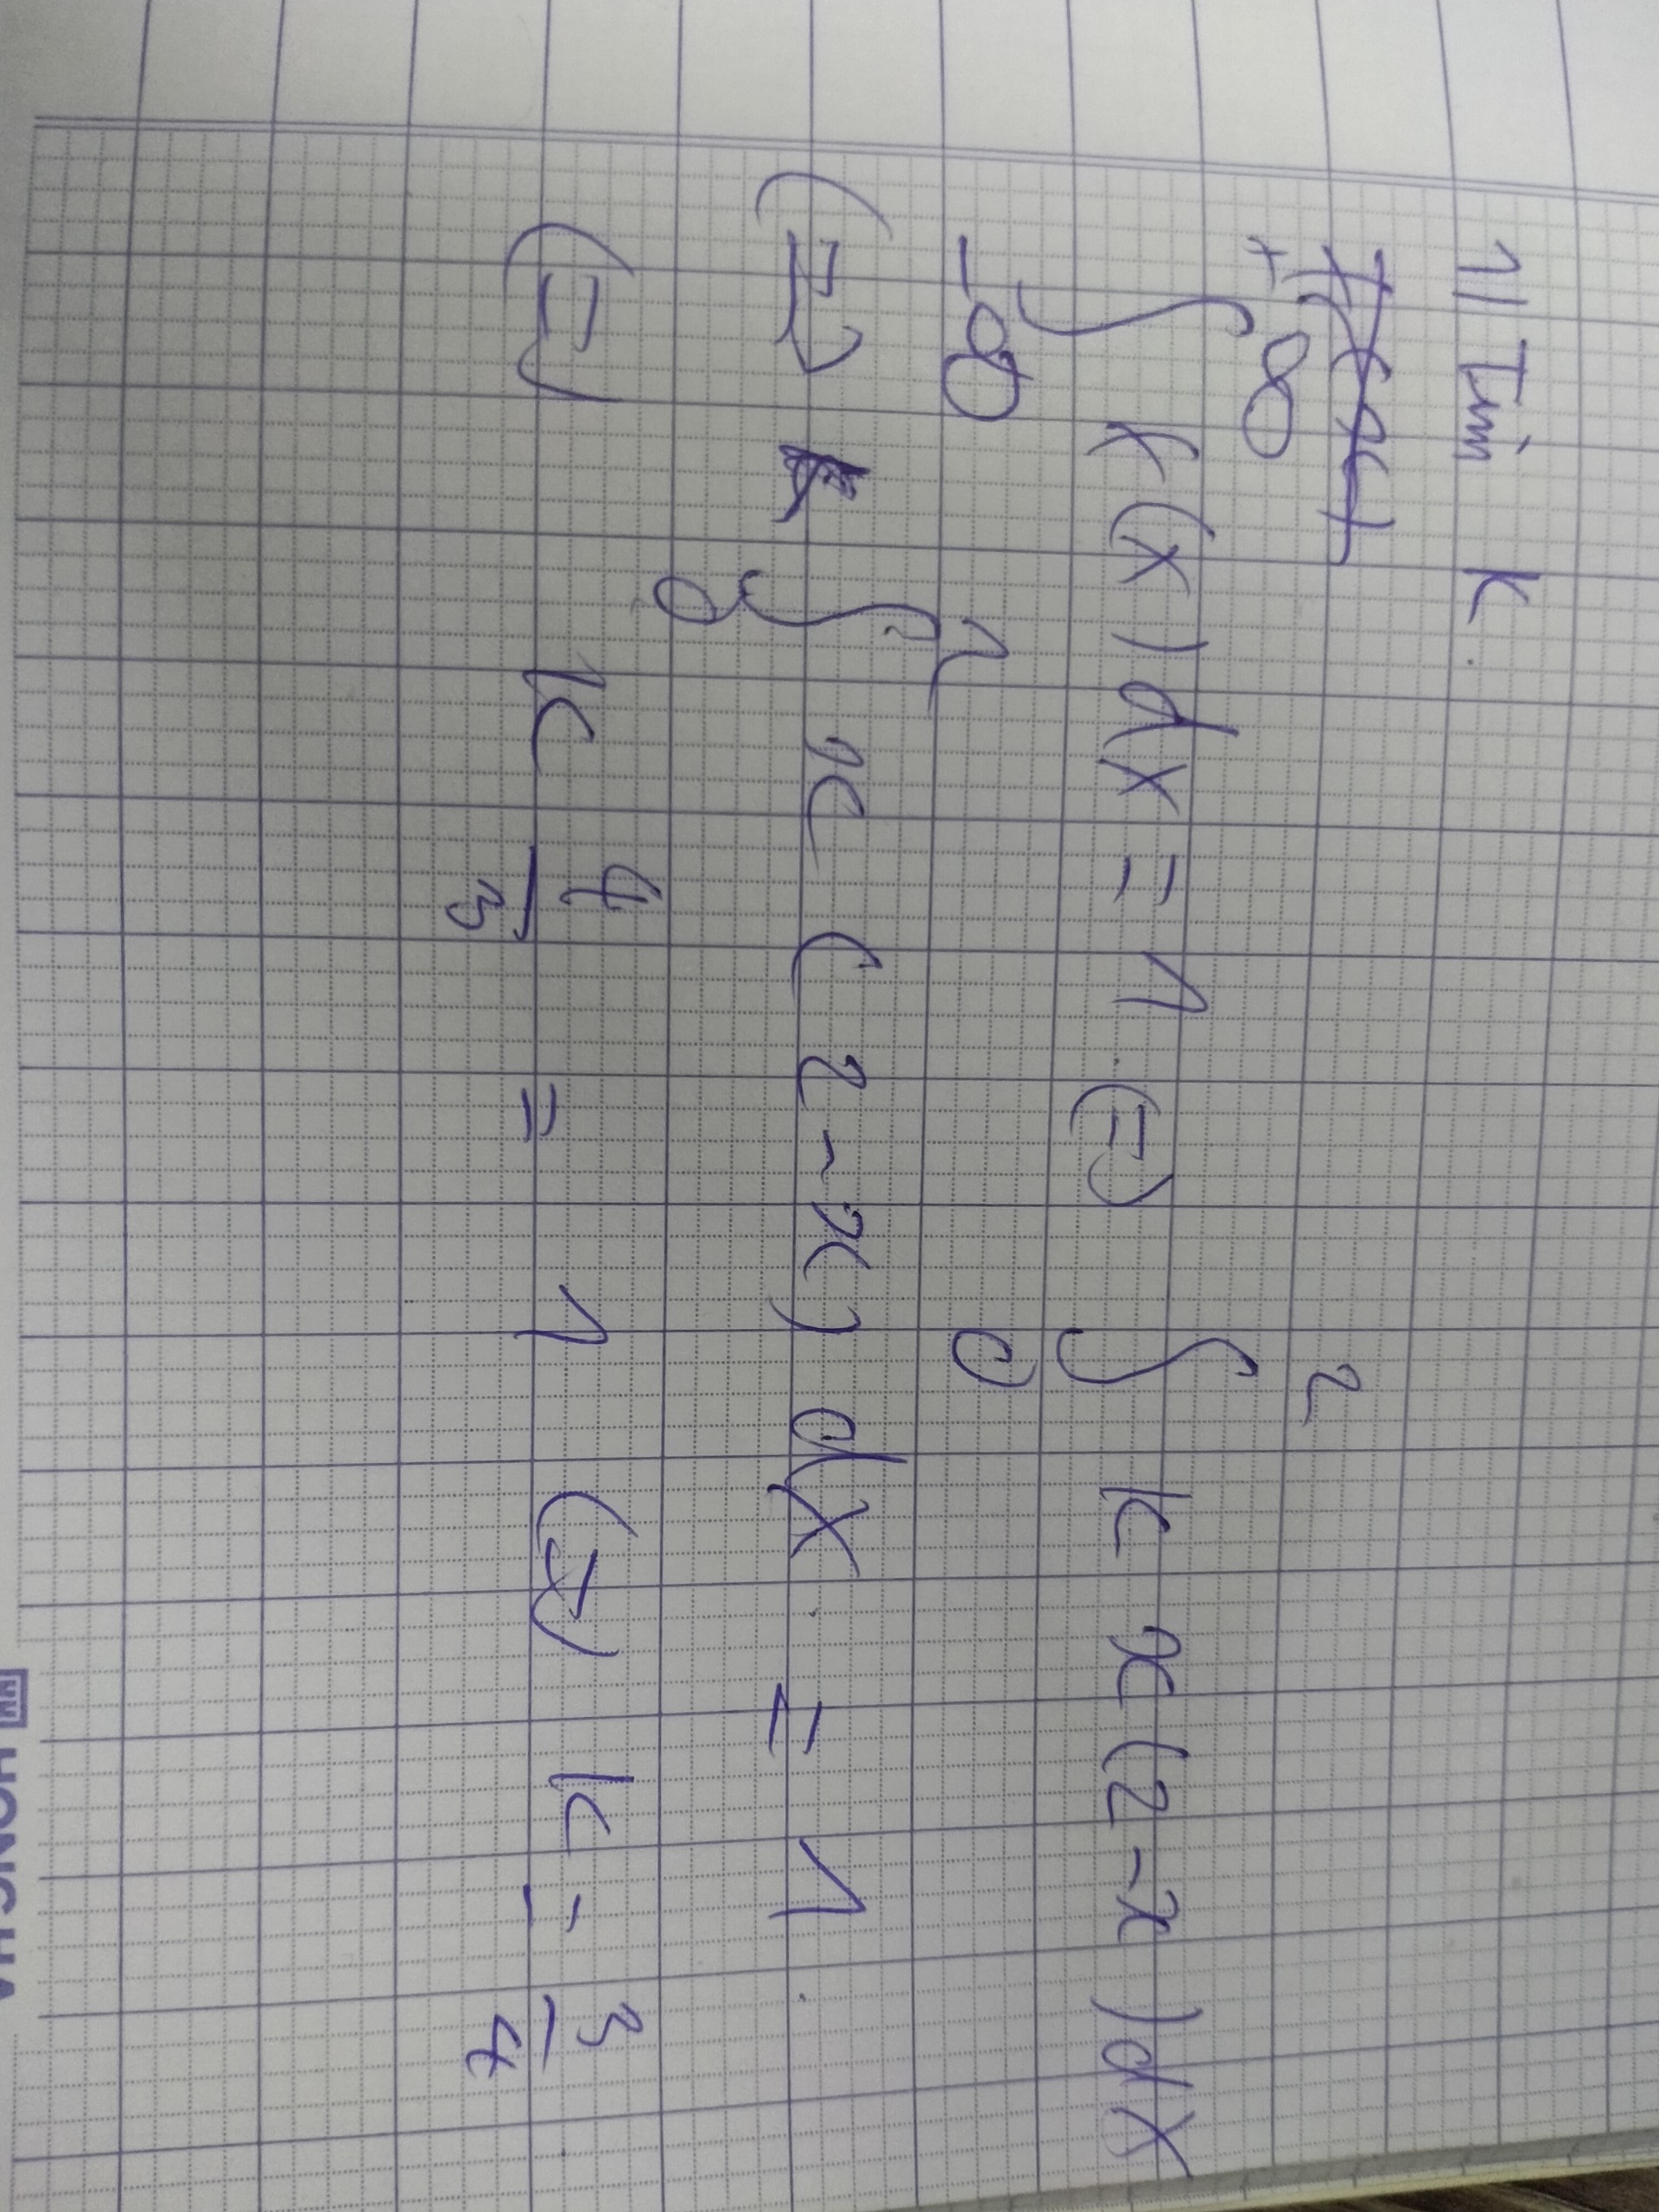 1) Tìm K.
f(x)
+∞
∫ f(x)dx = 1. (=) ∫₀² k x(2-x)dx
-∞
(=) k ∫₀² x (2-x) dx. = 1.
(=) K 4/3 = 1 (=) K = 3/4
HONG HA